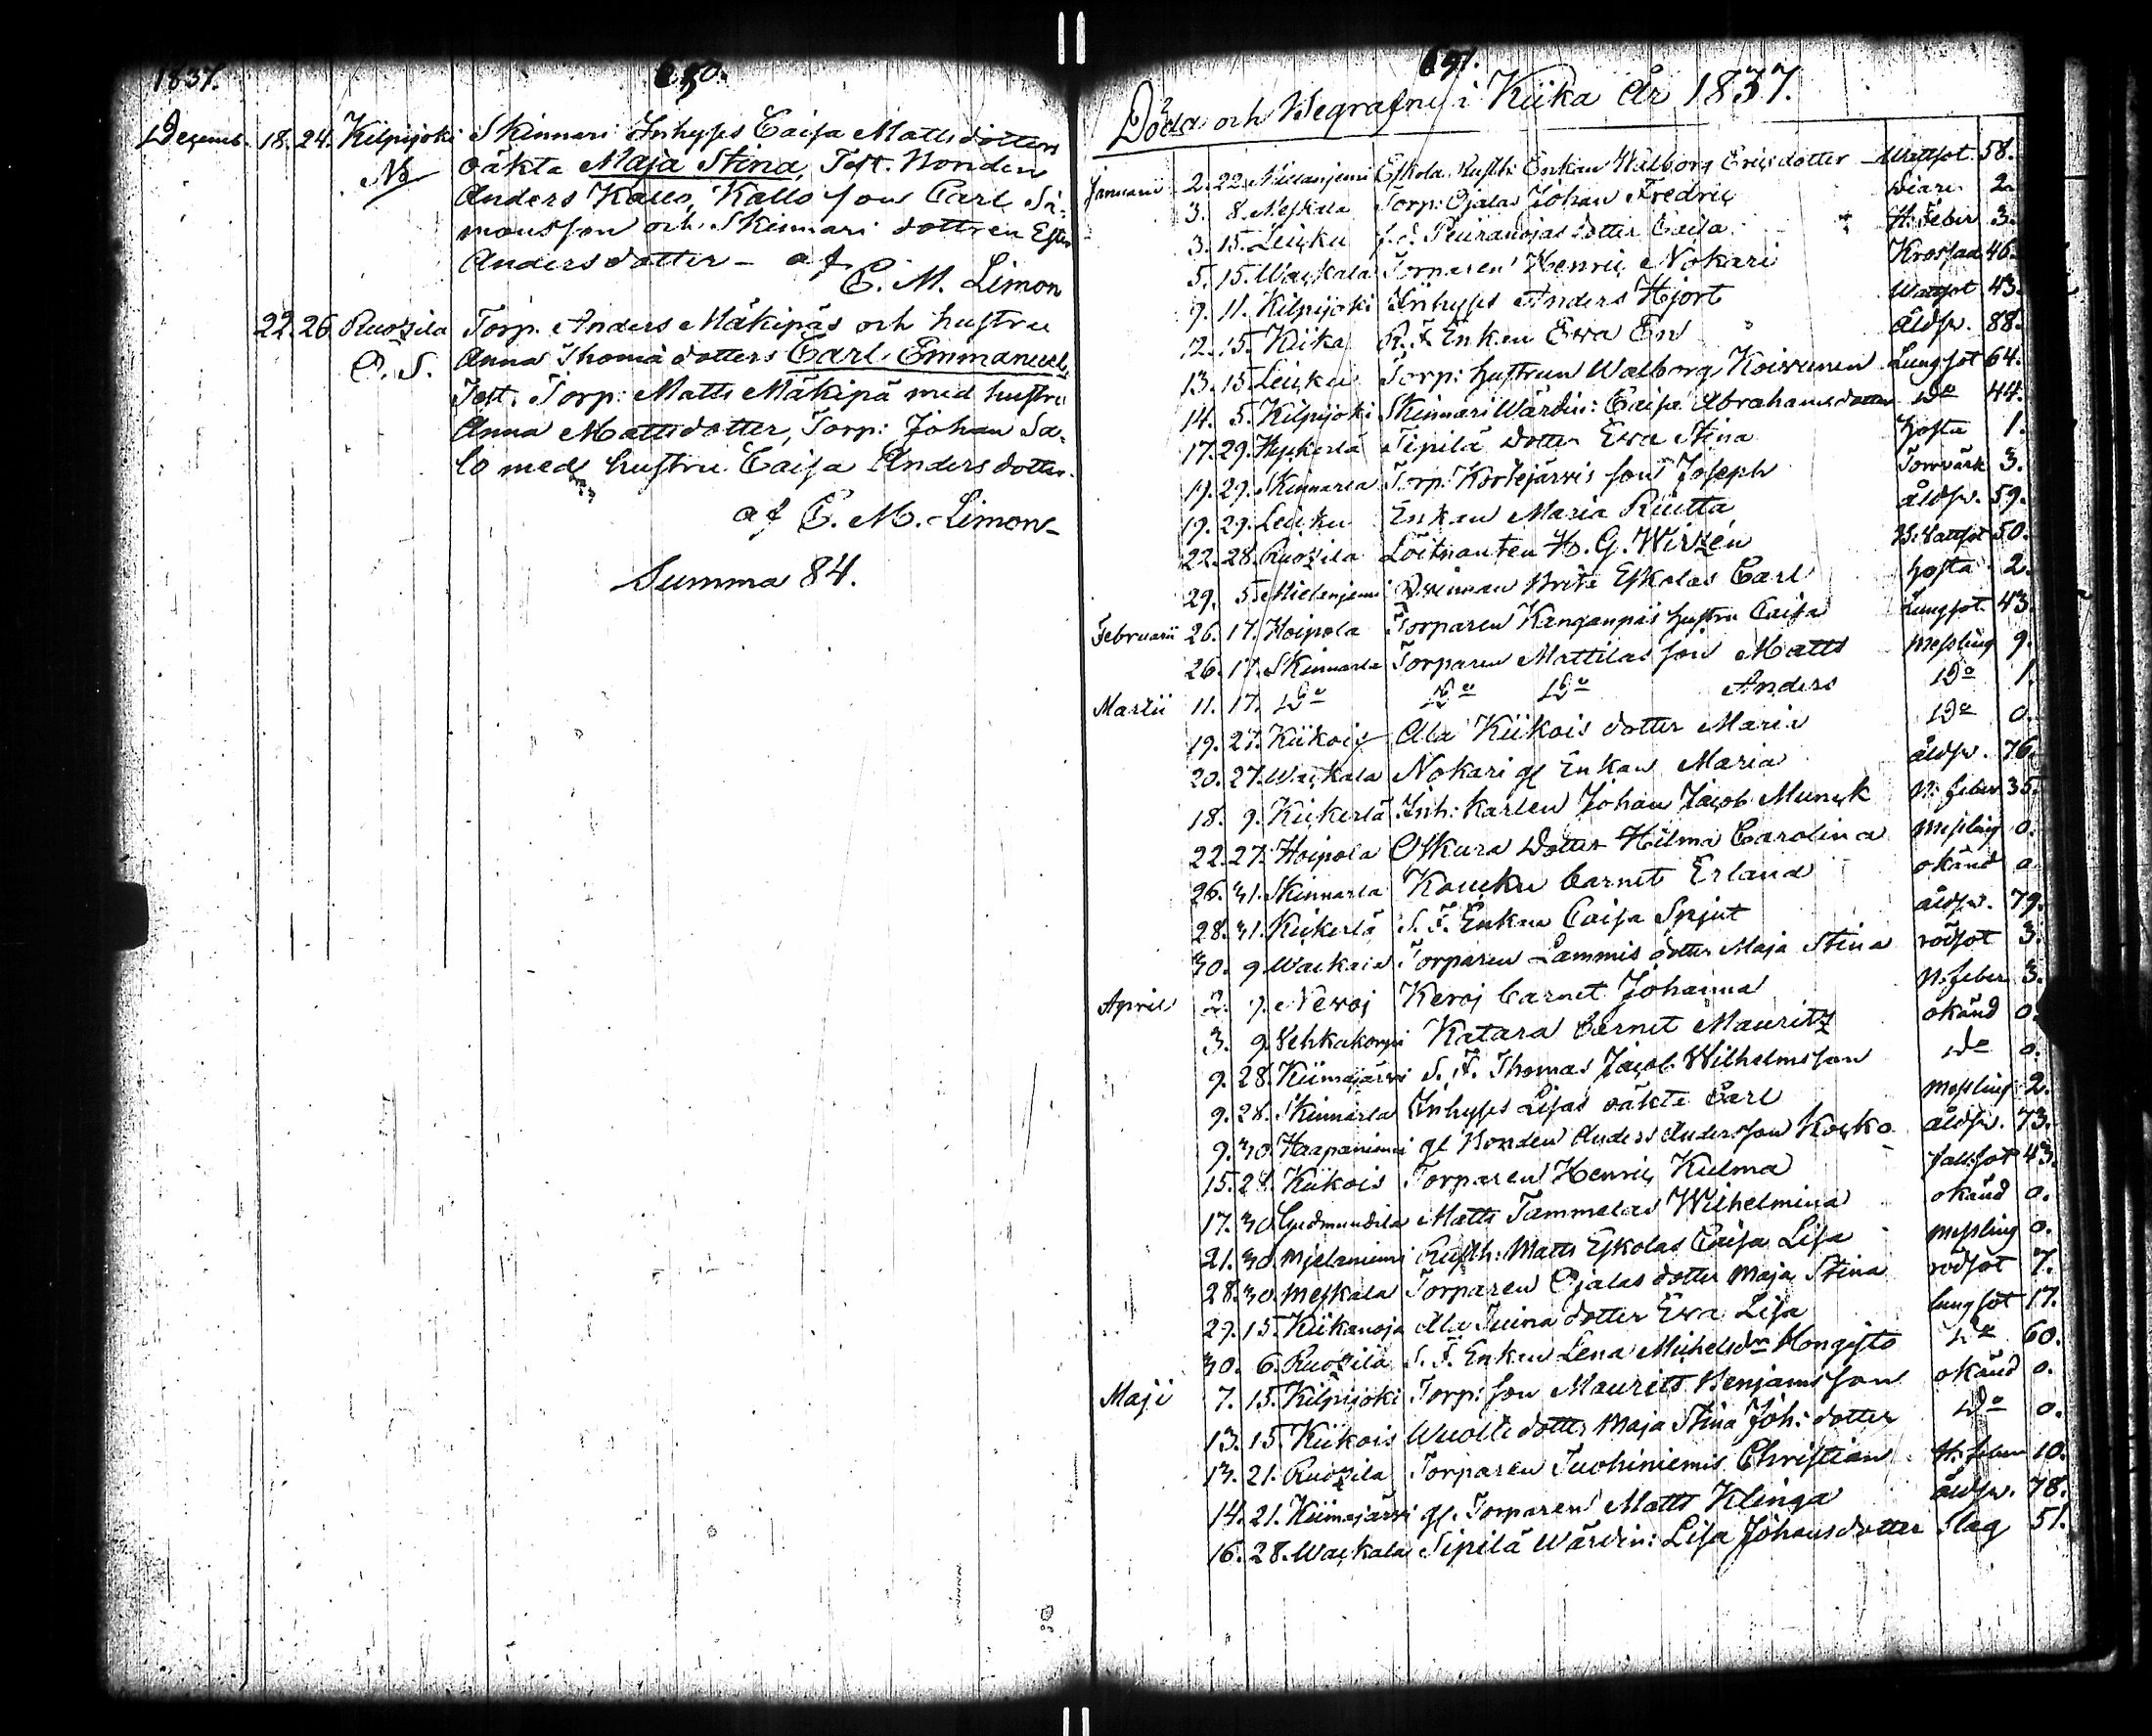 1837.
690.
Decemb. 18. 24. Kilpijoki Skinnari Inhyses Caisa Mattsdotters
No oäkta Maja Stina, Test. Bonden
Anders Kallo, Kallo son Carl Si-
monsson och Skinnari dottren Ester
Andersdotter - af
C. M. Limon
22. 26. Ruozila Torp. Anders Mäkipäs och hustru
O. S. Anna Thomä dotters Carl Emmanuel,
Test. Torp. Matts Mäkipä med hustru
Anna Mattsdotter, Torp: Johan Sa-
lo med hustru Caisa Andersdotter.
af C. M. Limon-
Summa 84.
691.
Döda och Begrafne i Kiika År 1837.
Januarii 2. 22. Eskola Rusth: Enkan Walborg Ericsdotter Wattsot. 58.
3. 8. Meskala Torp: Ojalas Johan Fredric 2.
3. 15. Leiçku Peuranojas dotter Caisa H. Feber 3.
5. 15. Waçkala Torparen Henric Nokari 46.
9. 11. Kilpijoki Inhyses Anders Hjort Wattsot 43.
12. 15. Kiika R. F. Enkan Ewa En åldsv. 88.
13. 15. Leiçku Torp: hustrun Walborg Koivunen Lungsot 64.
14. 5. Kilpijoki Skinnari Wärdin: Caisa Abrahamsdotter Do 44.
17. 29. Sipilä dotter Ewa Stina hosta 1.
19. 29. Skinnarla Torp: Kortejärvis son Joseph Torrvärk 3.
19. 29. Leiçku Enkan Maria Riutta åldsv. 59.
22. 28. Ruozila Löitnanten H. G. Wirzén 50.
29. 5. Brita Eskolas Carl hosta 2.
Februarii 26. 17. Hoipola Torparen Kanganpäs hustru Caisa Lungsot. 43.
26. 17. Skinnarla Torparen Mattilas son Matts Messling 9.
Martii 11. 17. Do Do Do Anders Do 1.
19. 27. Kiikois Ala Kiikois dotter Maria Do 0.
20. 27. Waçkala Nokari gl Enkan Maria åldsv. 76.
18. 9. Kiçkerlä Inh: Karlen Johan Jacob Munçk N: feber 35.
22. 27. Hoipola Oskura dotter Hilma Carolina Messling 0.
26. 31. Skinnarla Kouçku barnet Erland okänd 0.
28. 31. Kiçkerlä S. F. Enkan Caisa Spjut åldsv. 79.
30. 9. Waçkala Torparen Lammis dotter Maja Stina rödsot 3.
April 2. 9. Kevoj barnet Johanna N. feber 3.
3. 9. Katara barnet Mauritz okänd 0.
9. 28. Kiimajärvi S. F. Thomas Jacob Wilhelmsson Do 0.
9. 28. Skinnarla Inhyses Lisas oäkta Carl Messling 2.
9. 30. Haapaniemi gl Bonden Anders Andersson Koçko åldsv. 73.
15. 28. Kiikois Torparen Henric Kulma 43.
17. 30. Gudmundila Matts Tammelas Wilhelmina okänd 0.
21. 30. Mjelaniemi Rusth: Matts Eskolas Caisa Lisa Messling 0.
28. 30. Meskala Torparen Ojalas dotter Maja Stina rödsot 7.
29. 15. Kiikanoja Ala Juina dotter Ewa Lisa lungsot 17.
30. 6. Ruozila S. F. Enkan Lena Michelsdr Hongisto Do 60.
Maji 7. 15. Kilpijoki Torp: son Maurits Benjamsson okänd 0.
13. 15. Kiikois Wuolle dotter Maja Stina Joh: dotter Do 0.
13. 21. Ruozila Torparen Tuohiniemis Christian H. feber 10.
14. 21. Kiimajärvi gl. Torparen Matts Klinga åldsv. 78.
16. 28. Waçkala Sipilä Wärdin: Lisa Johansdotter Slag 51.